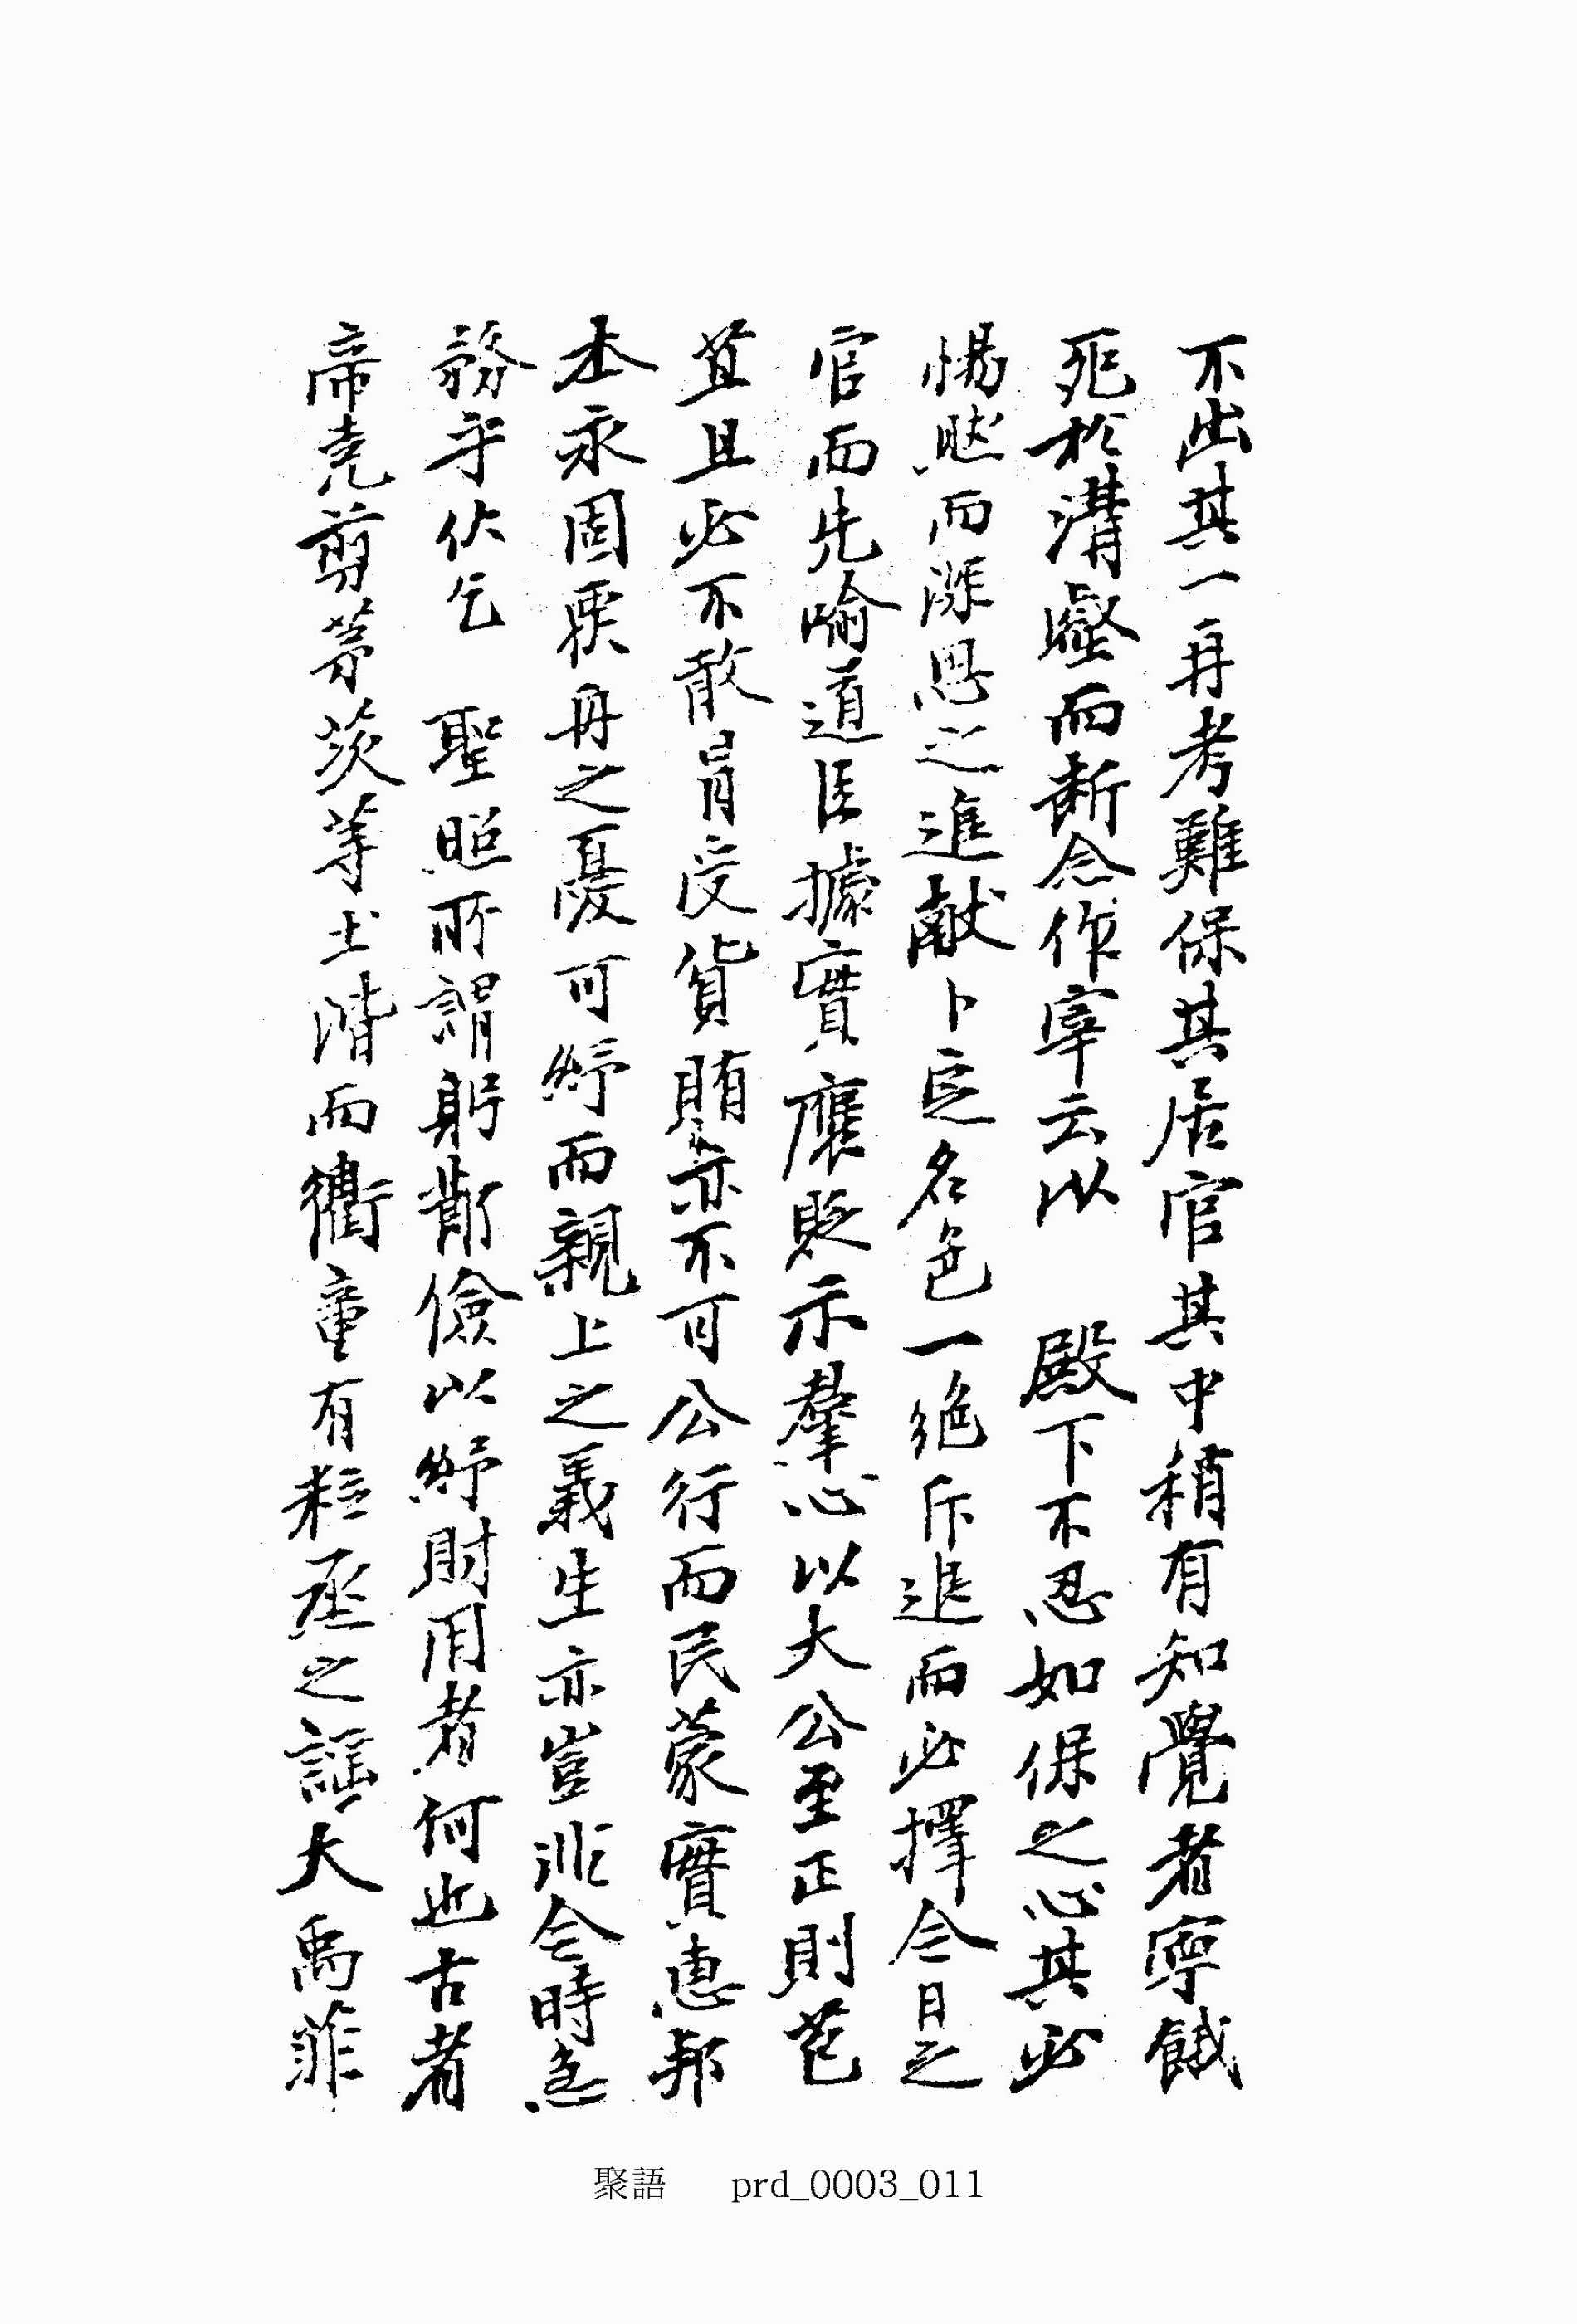 不出其一再考難保其居官其中稍有知覺者寧餓
死於溝壑而斷念作宰云以 殿下不忍如保之心其必
惕然而深思之進献卜定名色一絶斥退而必擇今日之
官而先喻道臣據實褒貶示羣心以大公至正則苞
苴且必不敢肯受貨賄亦不可公行而民蒙實惠邦
本永固覆舟之憂可紓而親上之義生亦豈非今時急
務乎伏乞 聖照所謂躬節儉以紓財用者何也古者
帝尭剪茅茨等土階而衢童有粒烝之謡大禹菲
聚語 prd_0003_011